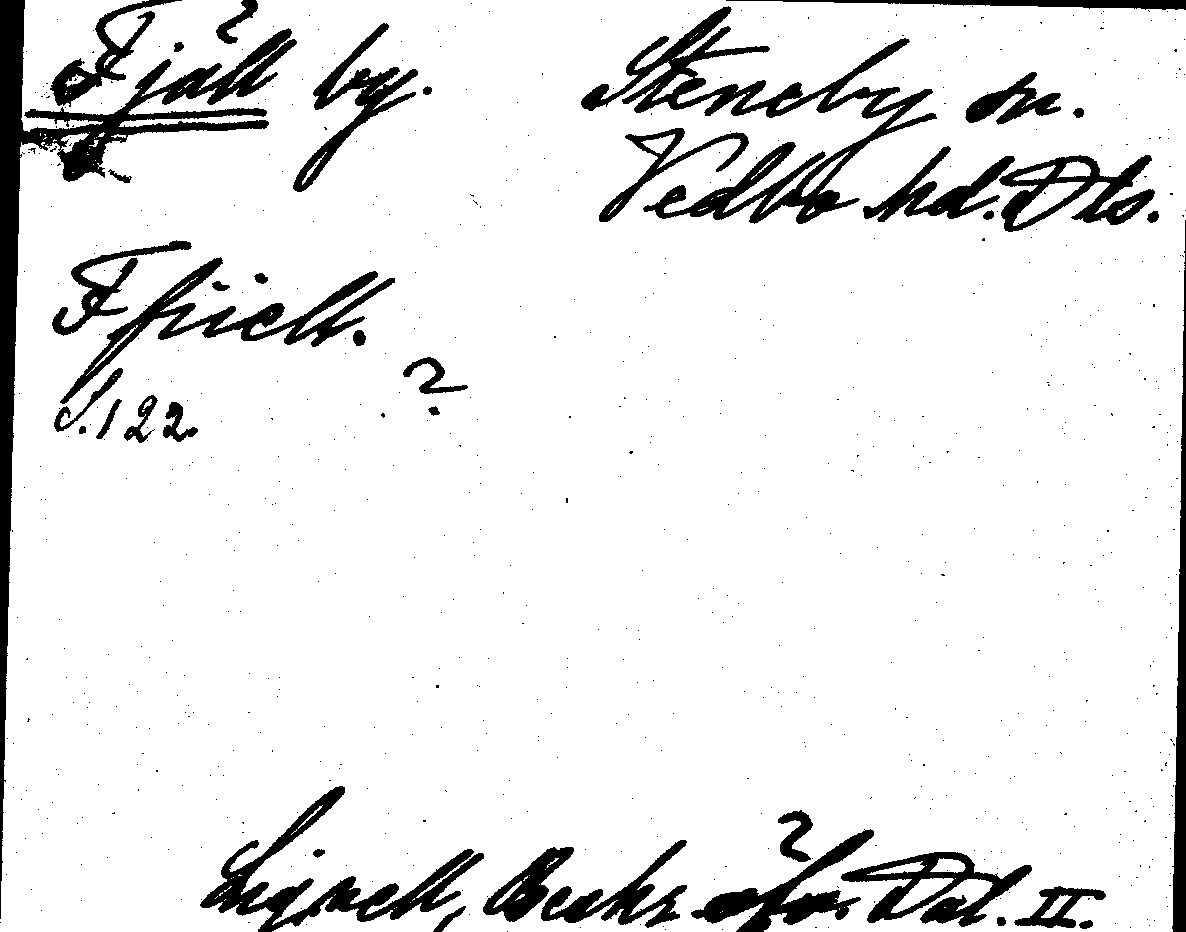 Fjäll by. Steneby sn.
Vedbo hd. Dls.
Ffiell.
S. 122. ?
Lignell, Beskr. öfv. Dal. II.